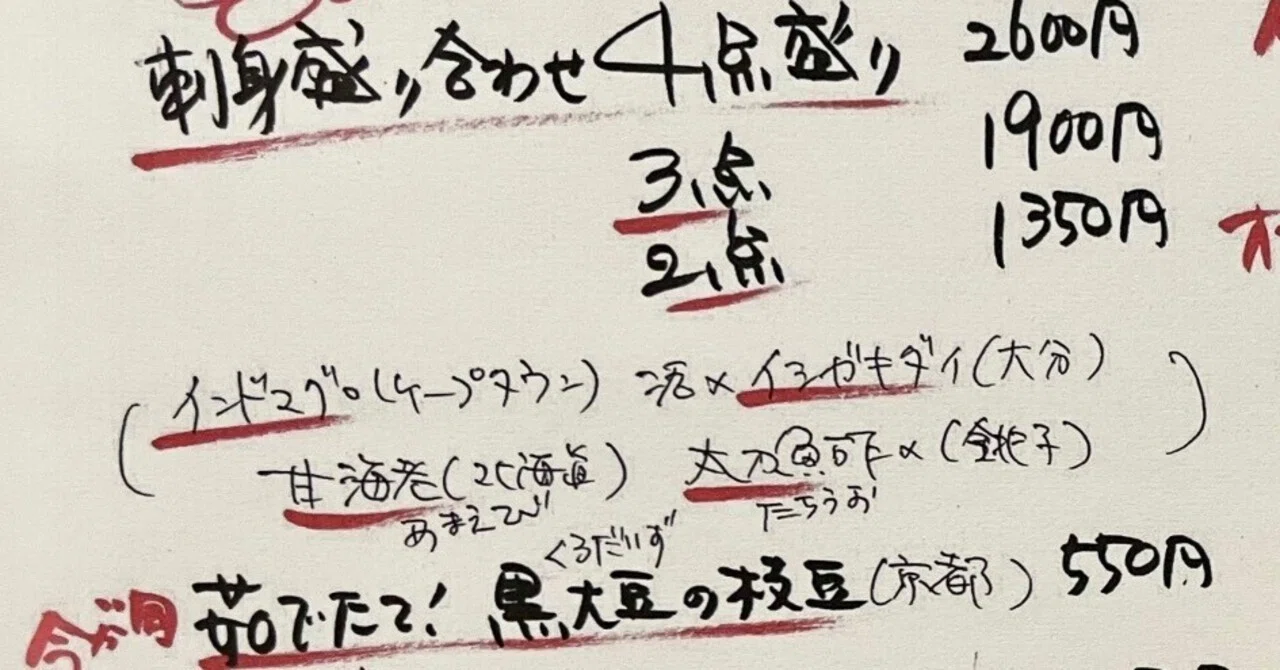 刺身盛り合わせ 4点盛り 2600円
3点 1900円
2点 1350円
(インドマグロ(ケープタウン) 活〆イシガキダイ(大分)
甘海老(北海道) 太刀魚 〆(銚子))
あまえび たちうお
くろだいず
今が旬 茹でたて! 黒大豆の枝豆(京都) 550円